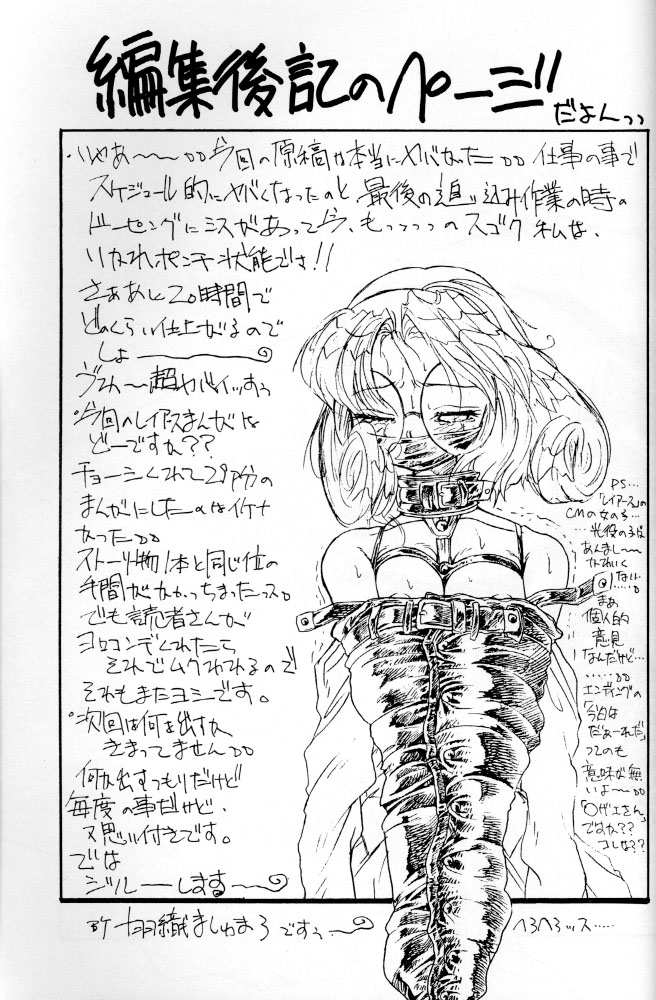 編集後記のページ
だよんっっ
・いやあ〜〜〜〇〇今回の原稿は本当にヤバかった〇〇仕事の事で
スケジュール的にヤバくなったのと最後の追い込み作業の時の
ドーピングにミスがあって今、もっっっっのスゴク私は、
いかれポンチ状態でさ!!
さぁあと20時間で
どのくらい仕上がるので
しょ────
ヴわ〜超ヤバイッすぅ
・今回のレイアースまんがは
どーですか??
チョーシくれて29P分の
まんがにしたのはイケナ
かった〇〇
ストーリィ物1本と同じ位の
手間がかかっちまったっス。
でも読者さんが
ヨロコンデくれたら
それでムクわれるので
それもまたヨシです。
・次回は何を出すか
きまってません〇〇
何か出すつもりだけど
毎度の事だけど、
又思い付きです。
では
ジルーーします〜
PS…
「レイアース」の
CMの女の子…
…光役の子は
あんまし〜〜
かわいく
ない……
まぁ
個人的
意見
なんだけど…
……〇〇
エンディングの
「今日は
だぁーれだ」
ってのも
意味が無
いよ〜〇〇
「〇ザエさん」
ですか??
コレな??
羽織ましゅまろですぅ〜
へろへろッス……